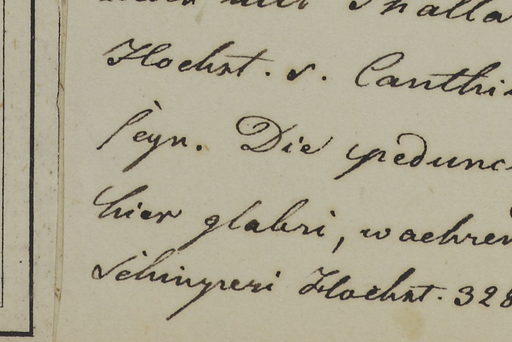 mit Thalla
Hochst. s. Canthi
seyn. Die pedunc
hier glabri, waehren
Schimperi Hochst. 328